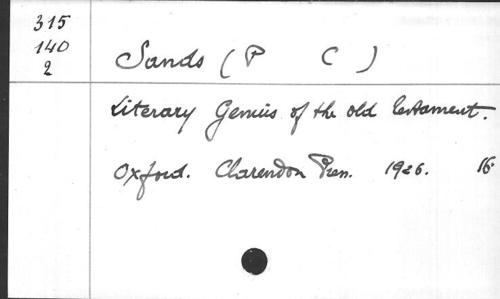 315
140
2
Sands (P C)
Literary Genius of the old Testament.
Oxford. Clarendon Press. 1926. 16.